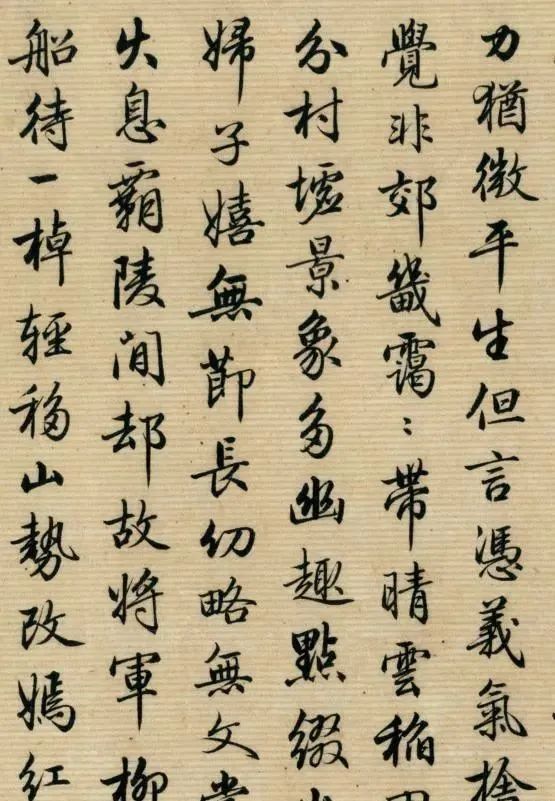 力猶微平生但言憑義氣捨
覺非郊畿靄〻帶晴雲稻
分村墟景象多幽趣點綴
婦子嬉無節長幼略無文
火息霸陵閒却故將軍柳
船待一棹輕移山勢改嫣紅